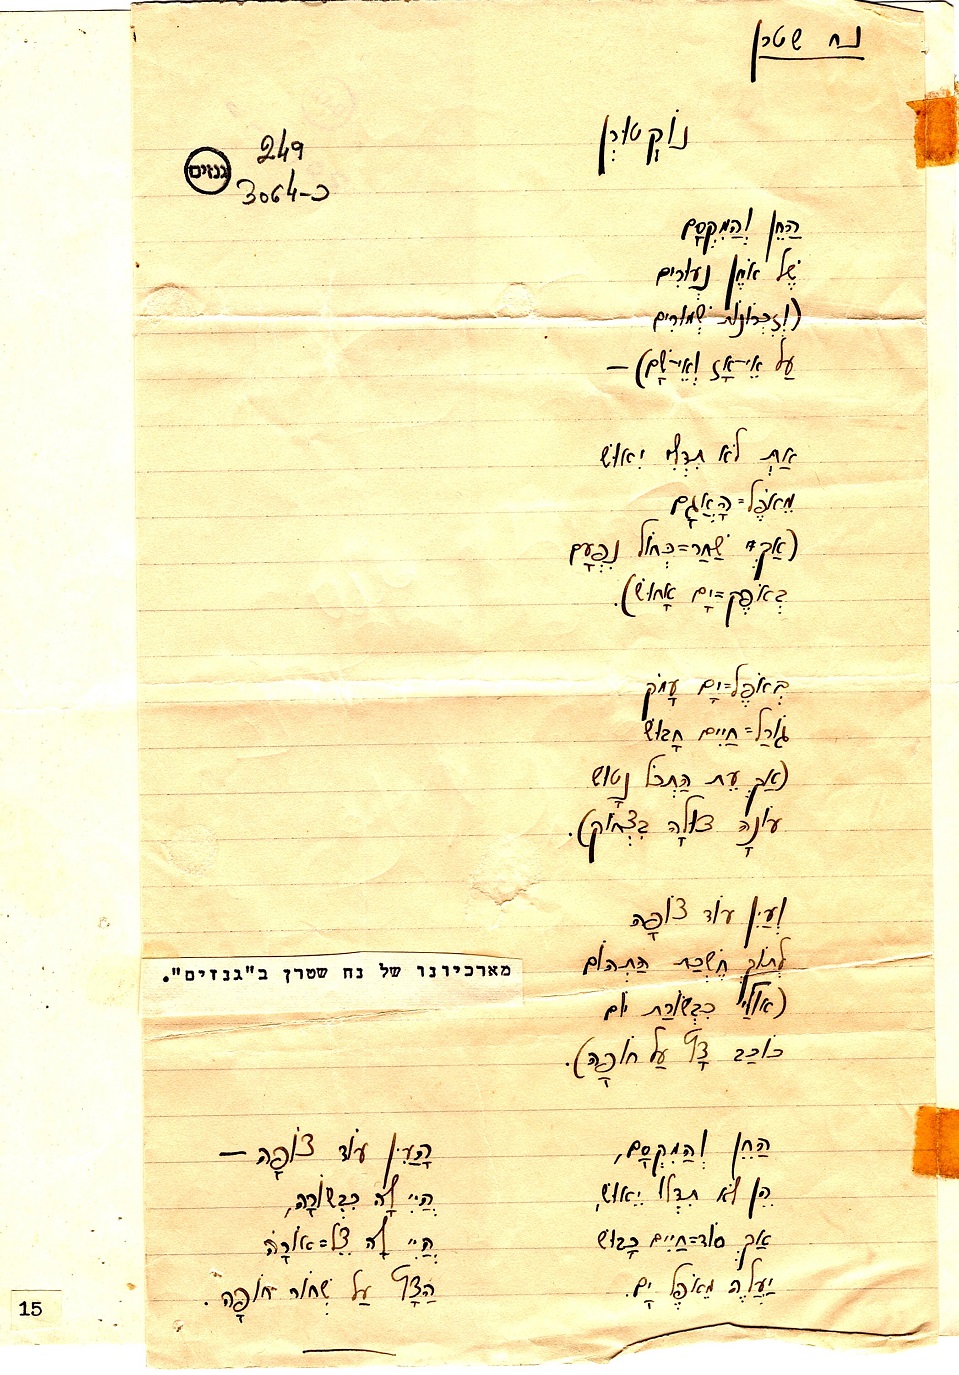 נח שטרן
נוֹקְטוּרְן
249
גנזים
כ-3064
הַחֵן וְהַמִּקְסָם
שֶׁל אֹתָן נְעוּרִים
(וְזִכְרוֹנוֹת שְׁמוּרִים
עַל אֵי-אָז וְאֵי-שָׁם) –
אַתְּ לֹא תִדְלִי יֵאוּשׁ
מֵאֹפֶל=הָאֲגָם
(אַךְ שַׁחַר=כְּחוֹל נִפְעָם
בְּאֹפֶק=יָם אָחוּשׁ).
בְּאֹפֶל=יָם עָמֹק
גּוֹרַל=חַיִּים חָבוּשׁ
(אַךְ עֵת הַתְּכֹל נָטוּשׁ
עוֹנָה צוּלָה בִּצְחוֹק).
וְעַיִן עוֹד צוֹפָה
לְתוֹךְ חֶשְׁכַת הַתְּהוֹם
(אוּלַי כִּבְשׂוֹרַת יוֹם
כּוֹכָב צָף עַל חוֹפָהּ).
מארכיונו של נח שטרן ב"גנזים".
הַחֵן וְהַמִּקְסָם,
הֵן לֹא תִדְלוּ יֵאוּשׁ,
אַךְ סוֹד=חַיִּים כָּבוּשׁ
יַעֲלֶה מֵאֹפֶל יָם.
הָעַיִן עוֹד צוֹפָה –
הֲיִי לָהּ כִּבְשׂוֹרָה,
הֲיִי לָהּ צֵל=אוֹרָה
הַצָּף עַל שְׁחוֹר חוֹפָהּ.
15